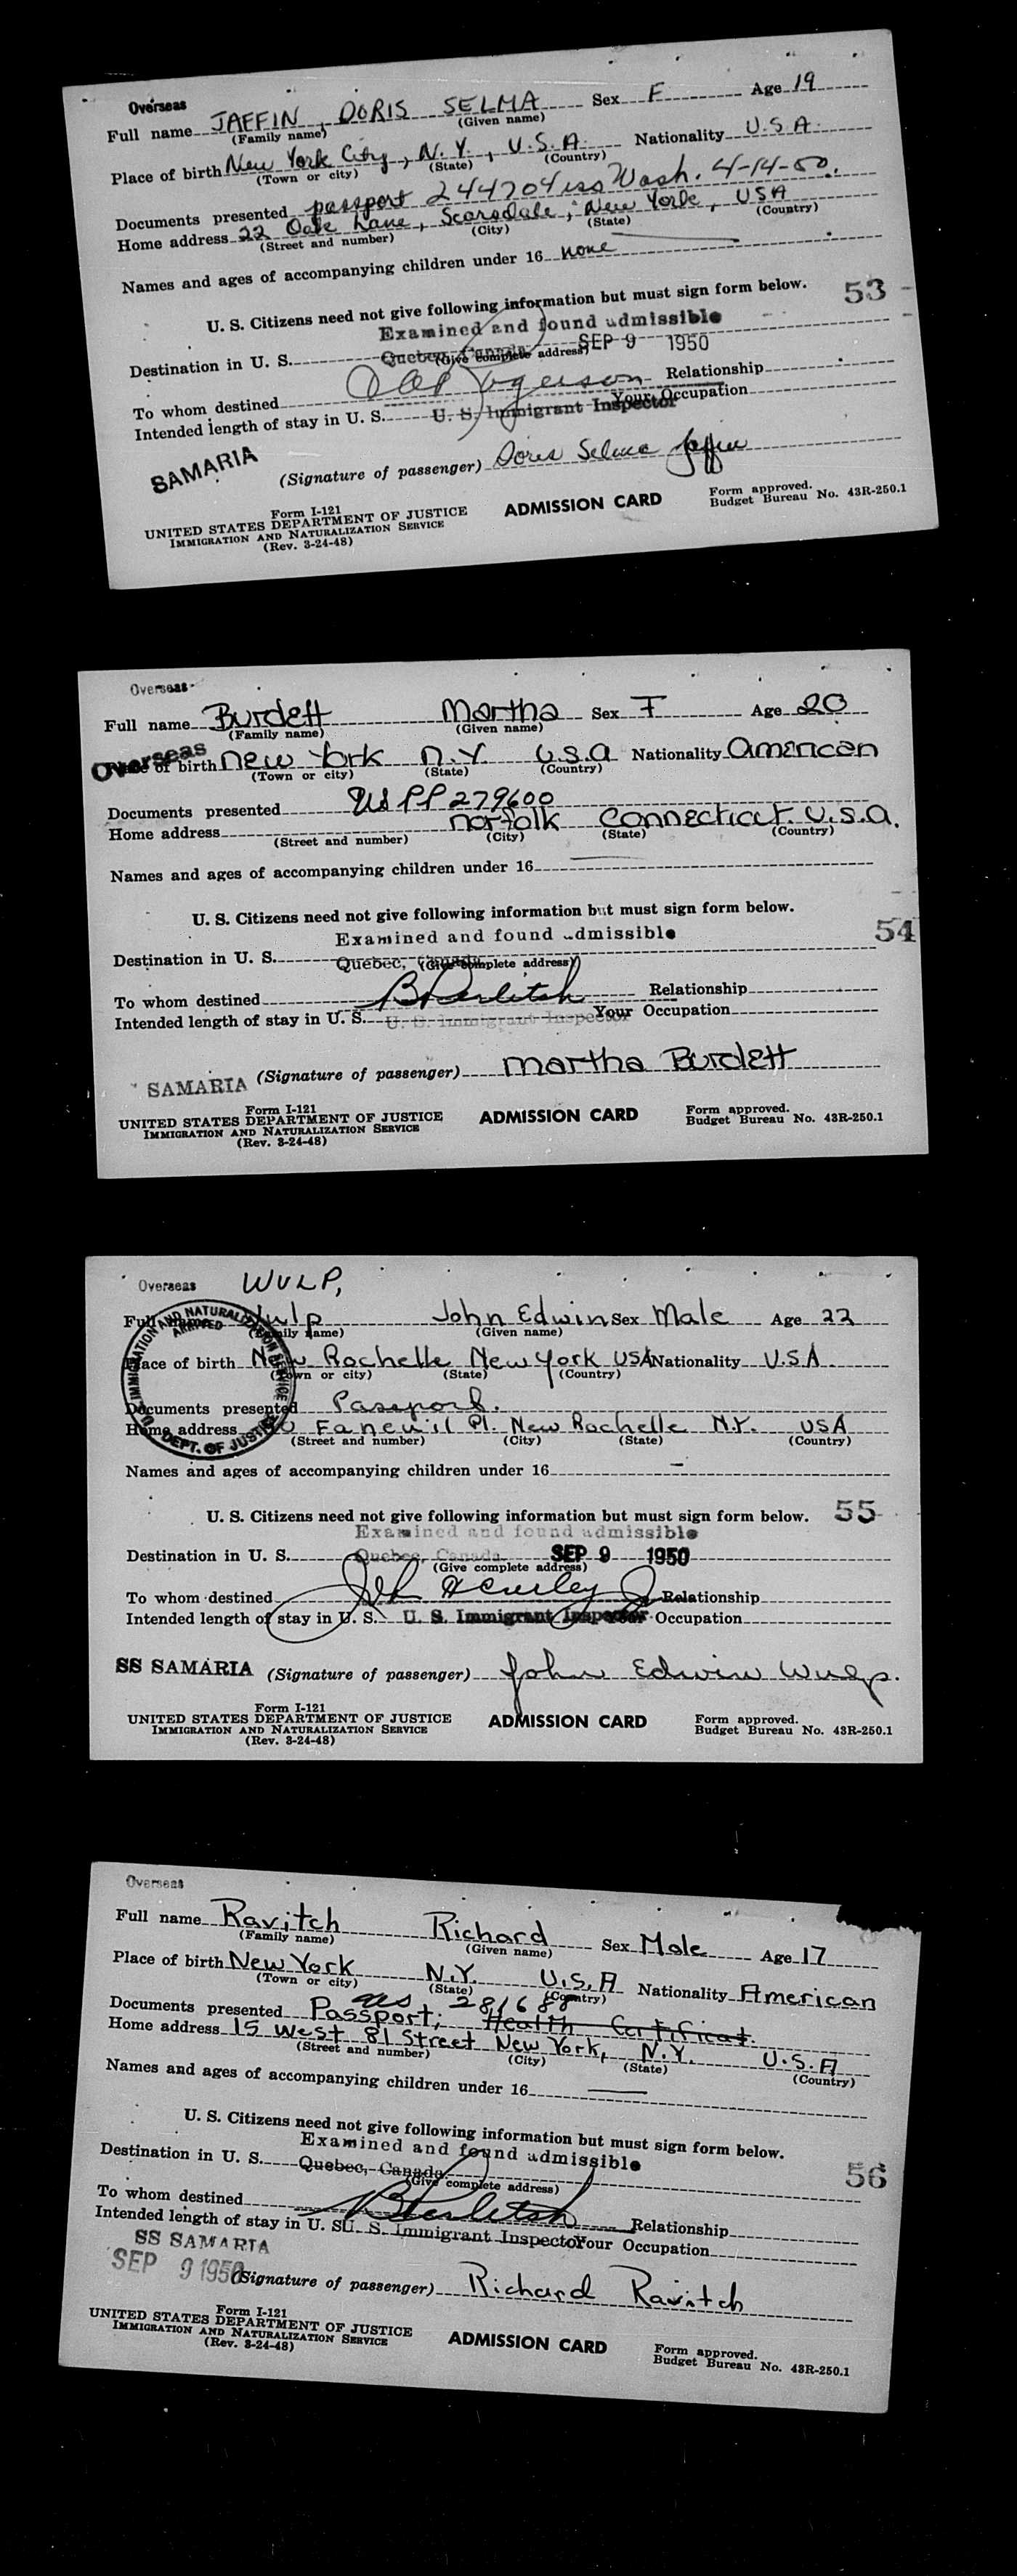 Overseas
Full name JAFFIN, DORIS SELMA Sex F Age 19
(Family name) (Given name)
Place of birth New York City, N.Y., U.S.A. Nationality U.S.A.
(Town or city) (State) (Country)
Documents presented passport 244704 iss Wash. 4-14-50.
Home address 22 Oak Lane, Scarsdale, New York, USA
(Street and number) (City) (State) (Country)
Names and ages of accompanying children under 16 none
U. S. Citizens need not give following information but must sign form below. 53
Examined and found admissible
Destination in U. S. Quebec, Canada SEP 9 1950
(Give complete address)
To whom destined Relationship
Intended length of stay in U. S. U. S. Immigrant Inspector Your Occupation
SAMARIA (Signature of passenger) Doris Selma Jaffin
Form I-121
UNITED STATES DEPARTMENT OF JUSTICE ADMISSION CARD Form approved.
IMMIGRATION AND NATURALIZATION SERVICE Budget Bureau No. 43R-250.1
(Rev. 3-24-48)
Overseas
Full name Burdett Martha Sex F Age 20
(Family name) (Given name)
Overseas
of birth New York N.Y. U.S.A Nationality American
(Town or city) (State) (Country)
Documents presented US PP 279600
Home address Norfolk Connecticut. U.S.A.
(Street and number) (City) (State) (Country)
Names and ages of accompanying children under 16
U. S. Citizens need not give following information but must sign form below.
Examined and found admissible 54
Destination in U. S. Quebec, Canada
(Give complete address)
To whom destined Relationship
Intended length of stay in U. S. U. S. Immigrant Inspector Your Occupation
SAMARIA (Signature of passenger) Martha Burdett
Form I-121
UNITED STATES DEPARTMENT OF JUSTICE ADMISSION CARD Form approved.
IMMIGRATION AND NATURALIZATION SERVICE Budget Bureau No. 43R-250.1
(Rev. 3-24-48)
Overseas WULP,
Full name Wulp John Edwin Sex Male Age 22
(Family name) (Given name)
Place of birth New Rochelle New York USA Nationality U.S.A.
(Town or city) (State) (Country)
Documents presented Passport.
Home address Faneuil Pl. New Rochelle N.Y. USA
(Street and number) (City) (State) (Country)
U.S. IMMIGRATION AND NATURALIZATION SERVICE
ARRIVED
DEPT. OF JUSTICE
Names and ages of accompanying children under 16 -
U. S. Citizens need not give following information but must sign form below. 55
Examined and found admissible
Destination in U. S. Quebec, Canada SEP 9 1950
(Give complete address)
To whom destined Relationship
Intended length of stay in U. S. U. S. Immigrant Inspector Your Occupation
SS SAMARIA (Signature of passenger) John Edwin Wulp.
Form I-121
UNITED STATES DEPARTMENT OF JUSTICE ADMISSION CARD Form approved.
IMMIGRATION AND NATURALIZATION SERVICE Budget Bureau No. 43R-250.1
(Rev. 3-24-48)
Overseas
Full name Ravitch Richard Sex Male Age 17
(Family name) (Given name)
Place of birth New York N.Y. U.S.A Nationality American
(Town or city) (State) (Country)
Documents presented Passport, US 281688 Health Certificat.
Home address 15 West 81 Street New York, N.Y. U.S.A
(Street and number) (City) (State) (Country)
Names and ages of accompanying children under 16
U. S. Citizens need not give following information but must sign form below.
Examined and found admissible 56
Destination in U. S. Quebec, Canada
(Give complete address)
To whom destined Relationship
Intended length of stay in U. S. U. S. Immigrant Inspector Your Occupation
SS SAMARIA
SEP 9 1950 (Signature of passenger) Richard Ravitch
Form I-121
UNITED STATES DEPARTMENT OF JUSTICE ADMISSION CARD Form approved.
IMMIGRATION AND NATURALIZATION SERVICE Budget Bureau No. 43R-250.1
(Rev. 3-24-48)